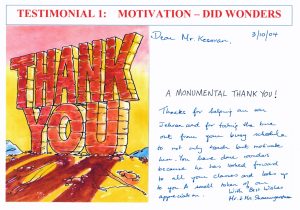 TESTIMONIAL 1: MOTIVATION – DID WONDERS
THANK
YOU
Dear Mr. Keeran,
3/10/04
A MONUMENTAL THANK YOU!
Thanks for helping our son
and for taking the time
out from your busy schedule
to not only teach but motivate
him. You have done wonders
because he has looked forward
to all your classes and looks up
to you. A small token of our
appreciation.
With Best Wishes
Mr. & Mrs